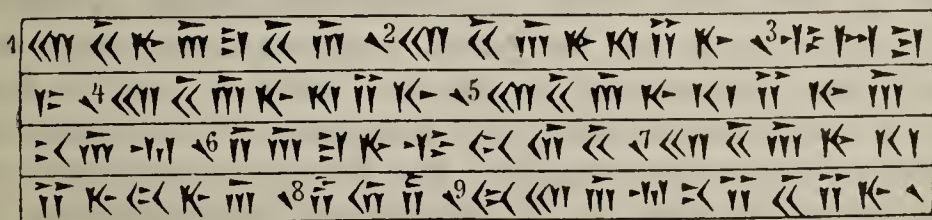 1 𐎧𐏁𐎹𐎠𐎼𐏁𐎠𐏐 2 𐎧𐏁𐎠𐎹𐎰𐎡𐎹𐏐 3 𐎺𐏀𐎼
𐎣𐏐 4 𐎧𐏁𐎠𐎹𐎰𐎡𐎹𐏐 5 𐎧𐏁𐎠𐎹𐎰𐎡𐎹𐎠
𐎴𐎠𐎶𐏐 6 𐎭𐎠𐎼𐎹𐎺𐏃𐎢𐏁𐏐 7 𐎧𐏁𐎠𐎹𐎰
𐎡𐎹𐏃𐎹𐎠𐏐 8 𐎱𐎢𐏂𐏐 9 𐏃𐎧𐎠𐎶𐎴𐎡𐏁𐎡𐎹𐏐